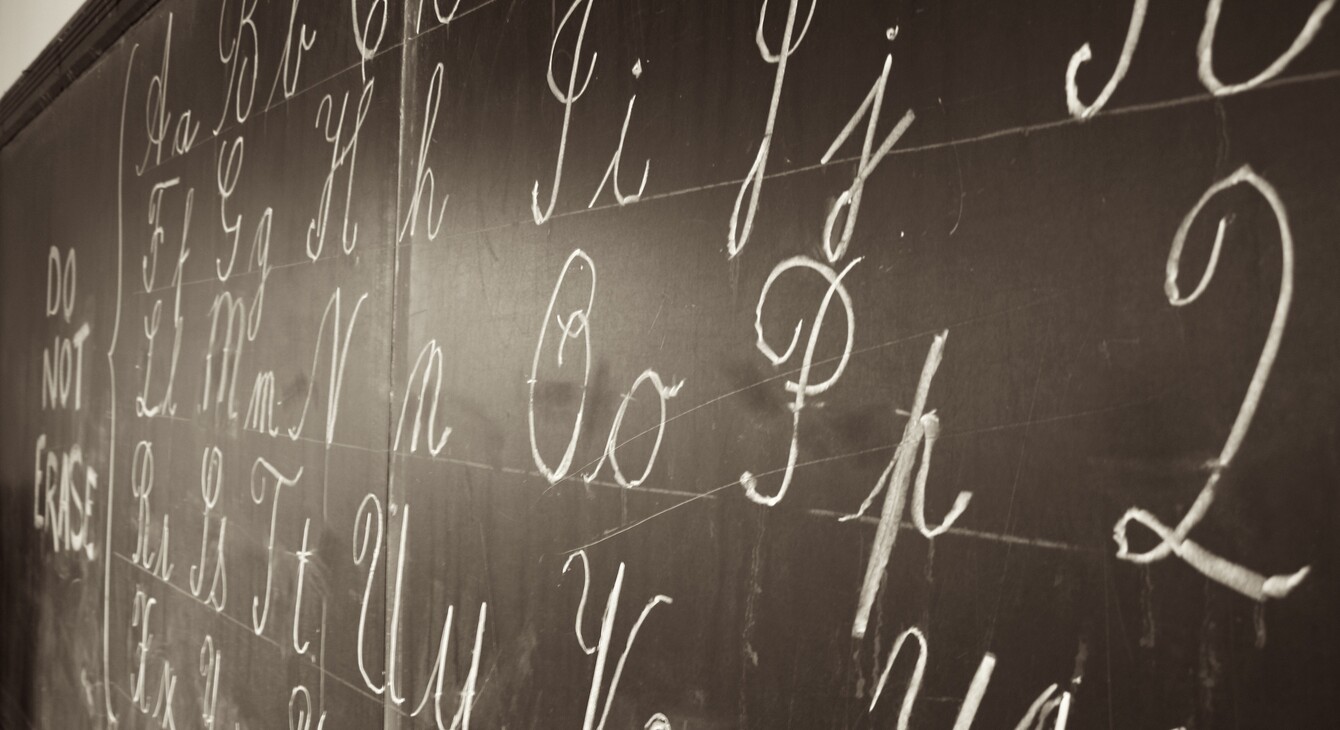 Aa Bb C
Ff Gg Hh Ii Jj
Ll Mm Nn Oo Pp Q
Rr Ss Tt Uu V
Xx Y
DO
NOT
ERASE